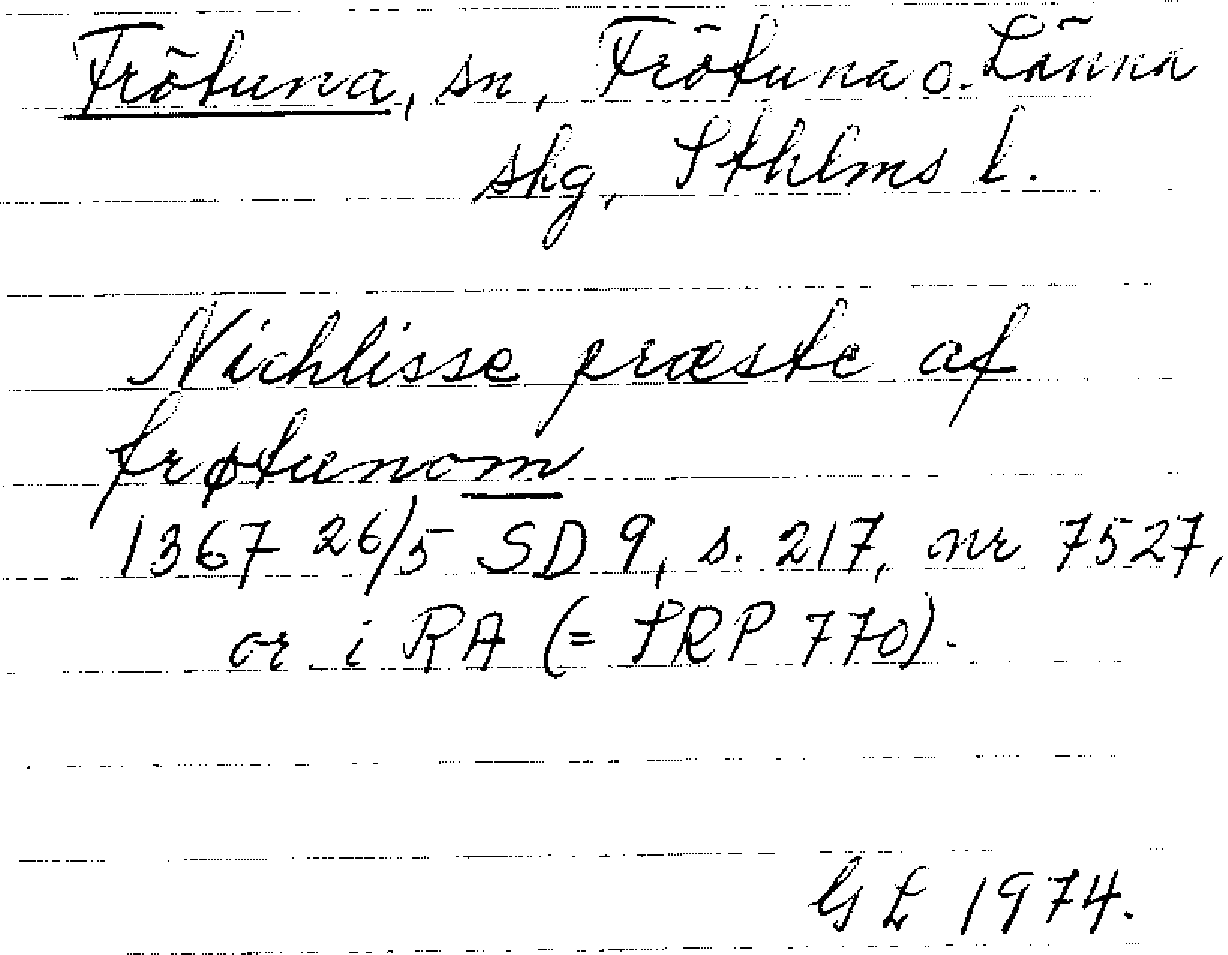 Frötuna, sn, Frötuna o. Länna
skg, Sthlms l.
Nichlisse præste af
frøtunom
1367 26/5 SD 9, s. 217, nr 7527,
or i RA (= SRP 770).
GL 1974.